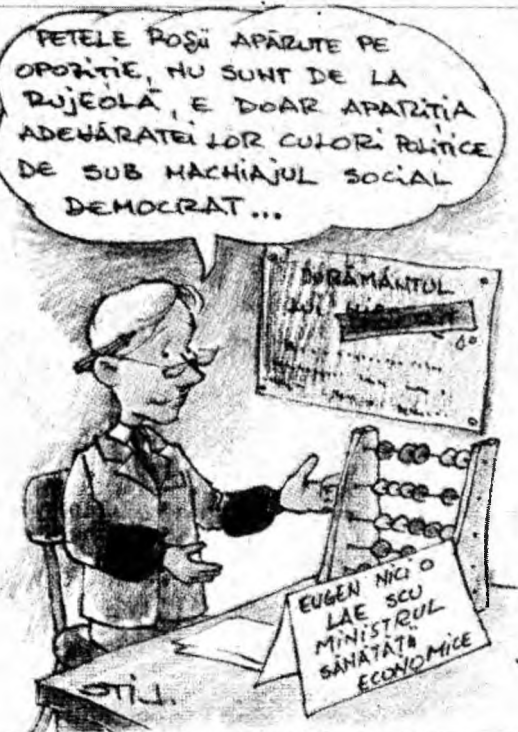 PETELE ROȘII APĂRUTE PE
OPOZIȚIE, NU SUNT DE LA
RUJEOLĂ, E DOAR APARIȚIA
ADEVĂRATEI LOR CULORI POLITICE
DE SUB MACHIAJUL SOCIAL
DEMOCRAT...
JURĂMÂNTUL
LUI
EUGEN NICI O
LAE SCU
MINISTRUL
SĂNĂTĂȚII
ECONOMICE
STIL.